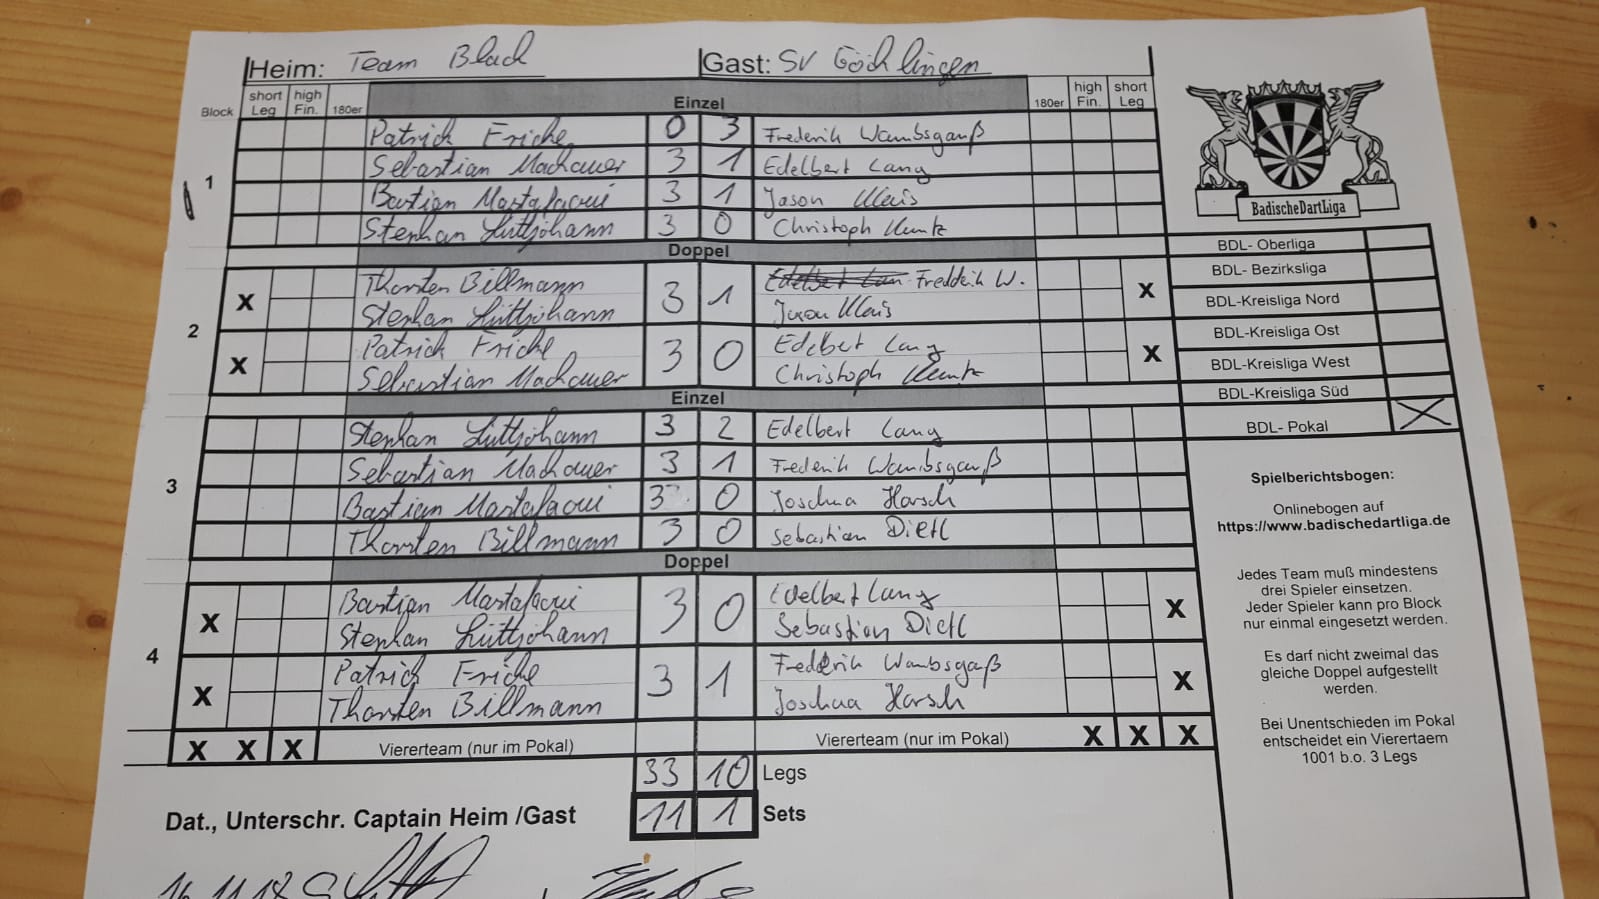 Heim: Team Black Gast: SV Göcklingen
Block short Leg high Fin. 180er Einzel 180er high Fin. short Leg
1
Patrick Fricke 0 3 Frederik Wambsganß
Sebastian Machauer 3 1 Edelbert Lang
Bastian Mastafaoui 3 1 Jason Klais
Stephan Lüttjohann 3 0 Christoph Kuntz
Doppel
2
X Thorsten Billmann 3 1 Frederik W. X
Stephan Lüttjohann Jason Klais
X Patrick Fricke 3 0 Edelbert Lang X
Sebastian Machauer Christoph Kuntz
Einzel
3
Stephan Lüttjohann 3 2 Edelbert Lang
Sebastian Machauer 3 1 Frederik Wambsganß
Bastian Mastafaoui 3 0 Joschua Harsch
Thorsten Billmann 3 0 Sebastian Dietl
Doppel
4
X Bastian Mastafaoui 3 0 Edelbert Lang X
Stephan Lüttjohann Sebastian Dietl
X Patrick Fricke 3 1 Frederik Wambsgaß X
Thorsten Billmann Joschua Harsch
X X X Viererteam (nur im Pokal) Viererteam (nur im Pokal) X X X
33 10 Legs
11 1 Sets
Dat., Unterschr. Captain Heim /Gast
BadischeDartLiga
BDL- Oberliga
BDL- Bezirksliga
BDL-Kreisliga Nord
BDL-Kreisliga Ost
BDL-Kreisliga West
BDL-Kreisliga Süd
BDL- Pokal X
Spielberichtsbogen:
Onlinebogen auf
https://www.badischedartliga.de
Jedes Team muß mindestens
drei Spieler einsetzen.
Jeder Spieler kann pro Block
nur einmal eingesetzt werden.
Es darf nicht zweimal das
gleiche Doppel aufgestellt
werden.
Bei Unentschieden im Pokal
entscheidet ein Vierertaem
1001 b.o. 3 Legs